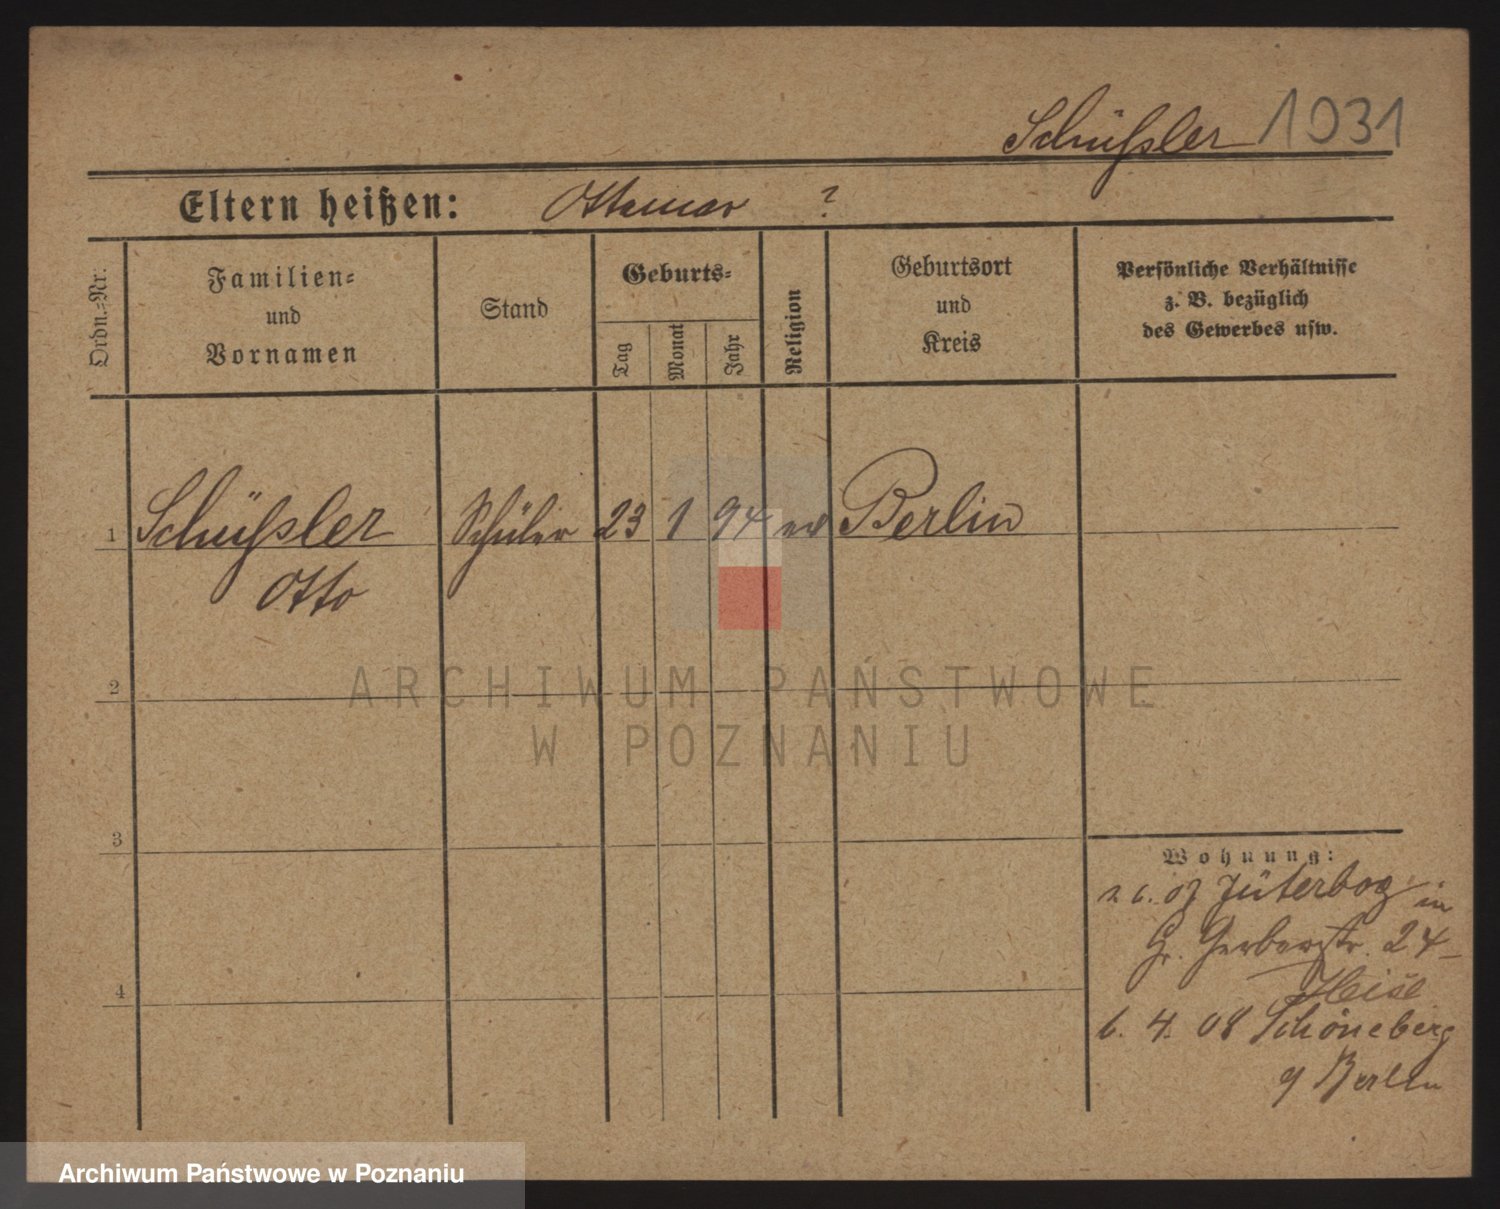 Schüßler 1031
Eltern heißen: Ottomar ?
Ordn.-Nr.
Familien=
und
Vornamen
Stand
Geburts=
Tag
Monat
Jahr
Religion
Geburtsort
und
Kreis
Persönliche Verhältnisse
z. B. bezüglich
des Gewerbes usw.
1 Schüßler Schüler 23 1 94 Berlin
Otto
2
3
4
Wohnung:
07 Jüterbog in
Gr. Gerberstr. 24
Heise
6. 4. 08 Schöneberg
Berlin
ARCHIWUM PAŃSTWOWE
W POZNANIU
Archiwum Państwowe w Poznaniu